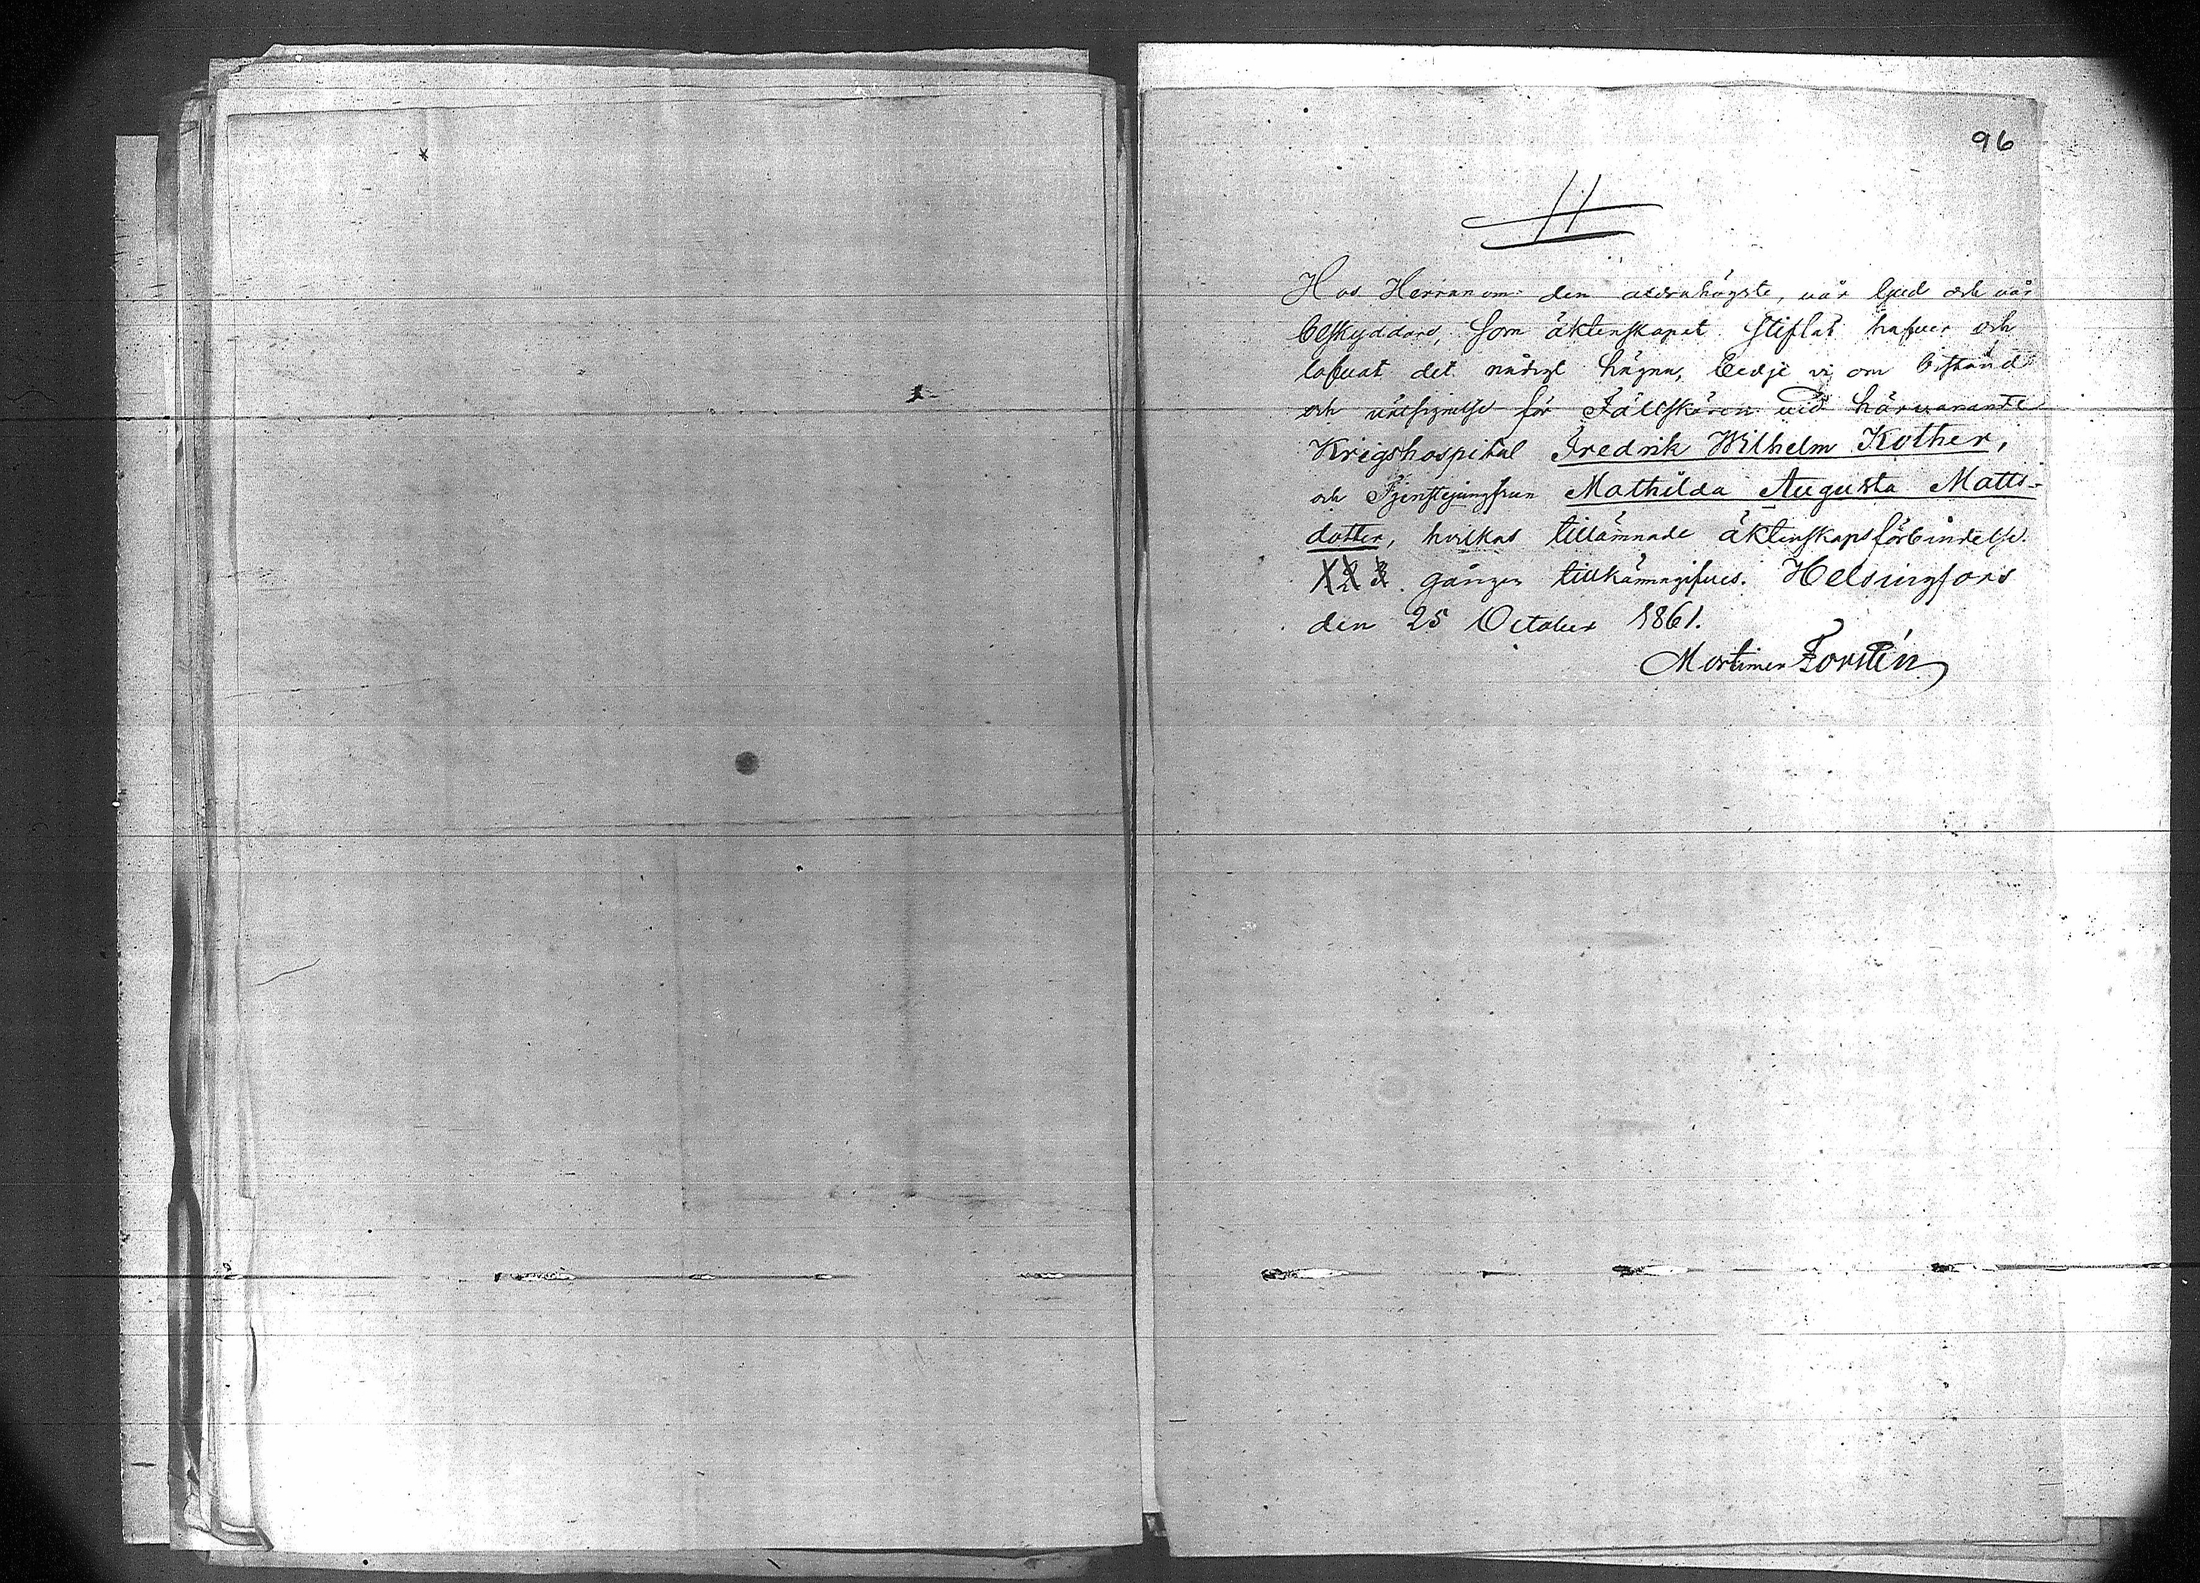 96
11
Hos Herranom den aldrahögste, vår ljud och vår
beskyddare, som äktenskapet stiftat hafver och
lofvat det nådigt hägna, bedje vi om bistånd
och välsignelse för Fältskären vid härvarande
Krigshospital Fredrik Wilhelm Kother,
och Tjenstejungfrun Mathilda Augusta Matts-
dotter, hvilkas tillämnade äktenskapsförbindelse
1 2 3 gången tillkännagifves. Helsingfors
den 25 October 1861.
Mortimer Forstén